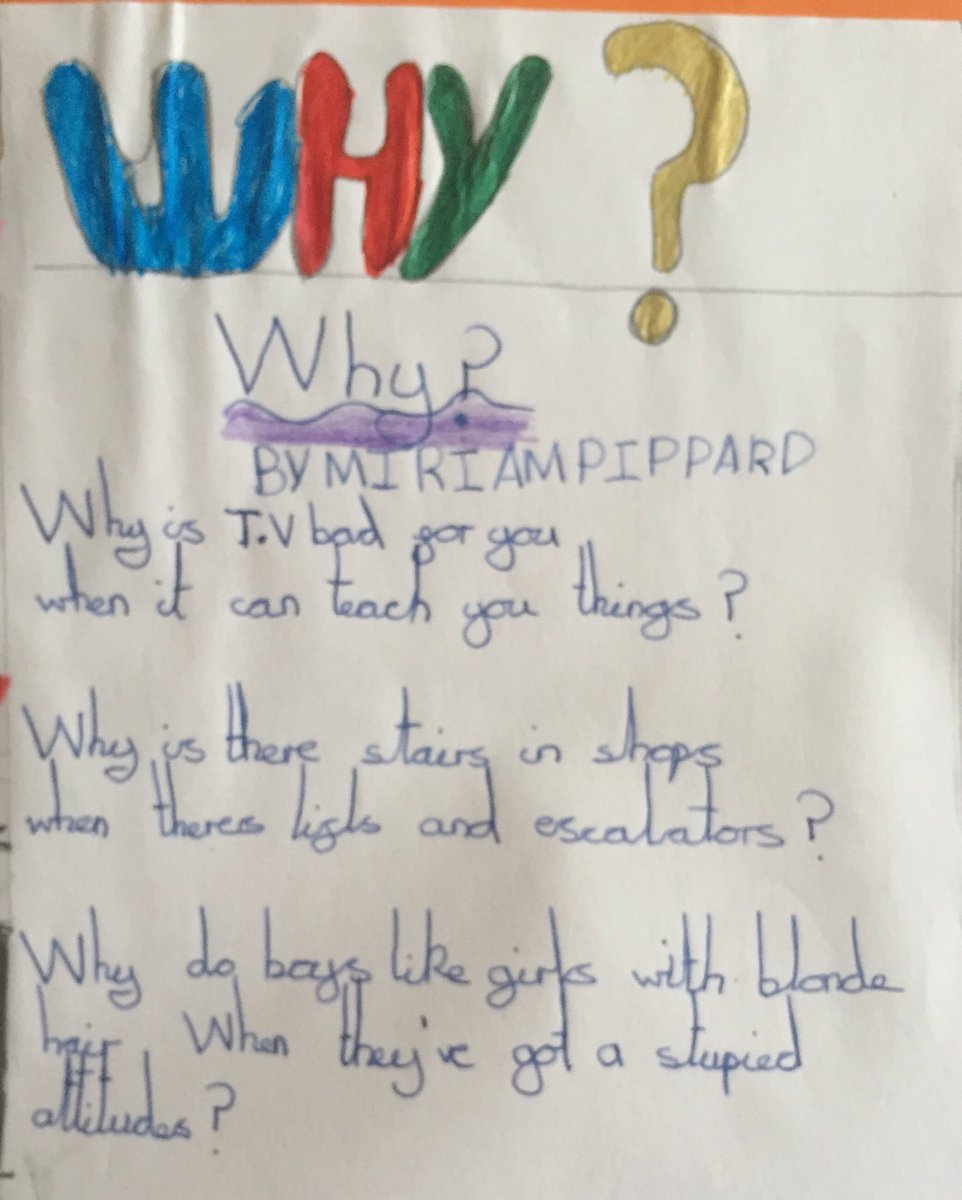 WHY?
Why?
BY MIRIAM PIPPARD
Why is T.V bad for you
when it can teach you things?
Why is there stairs in shops
when theres lifts and escalators?
Why do boys like girls with blonde
hair, When they've got a stupied
attitudes?